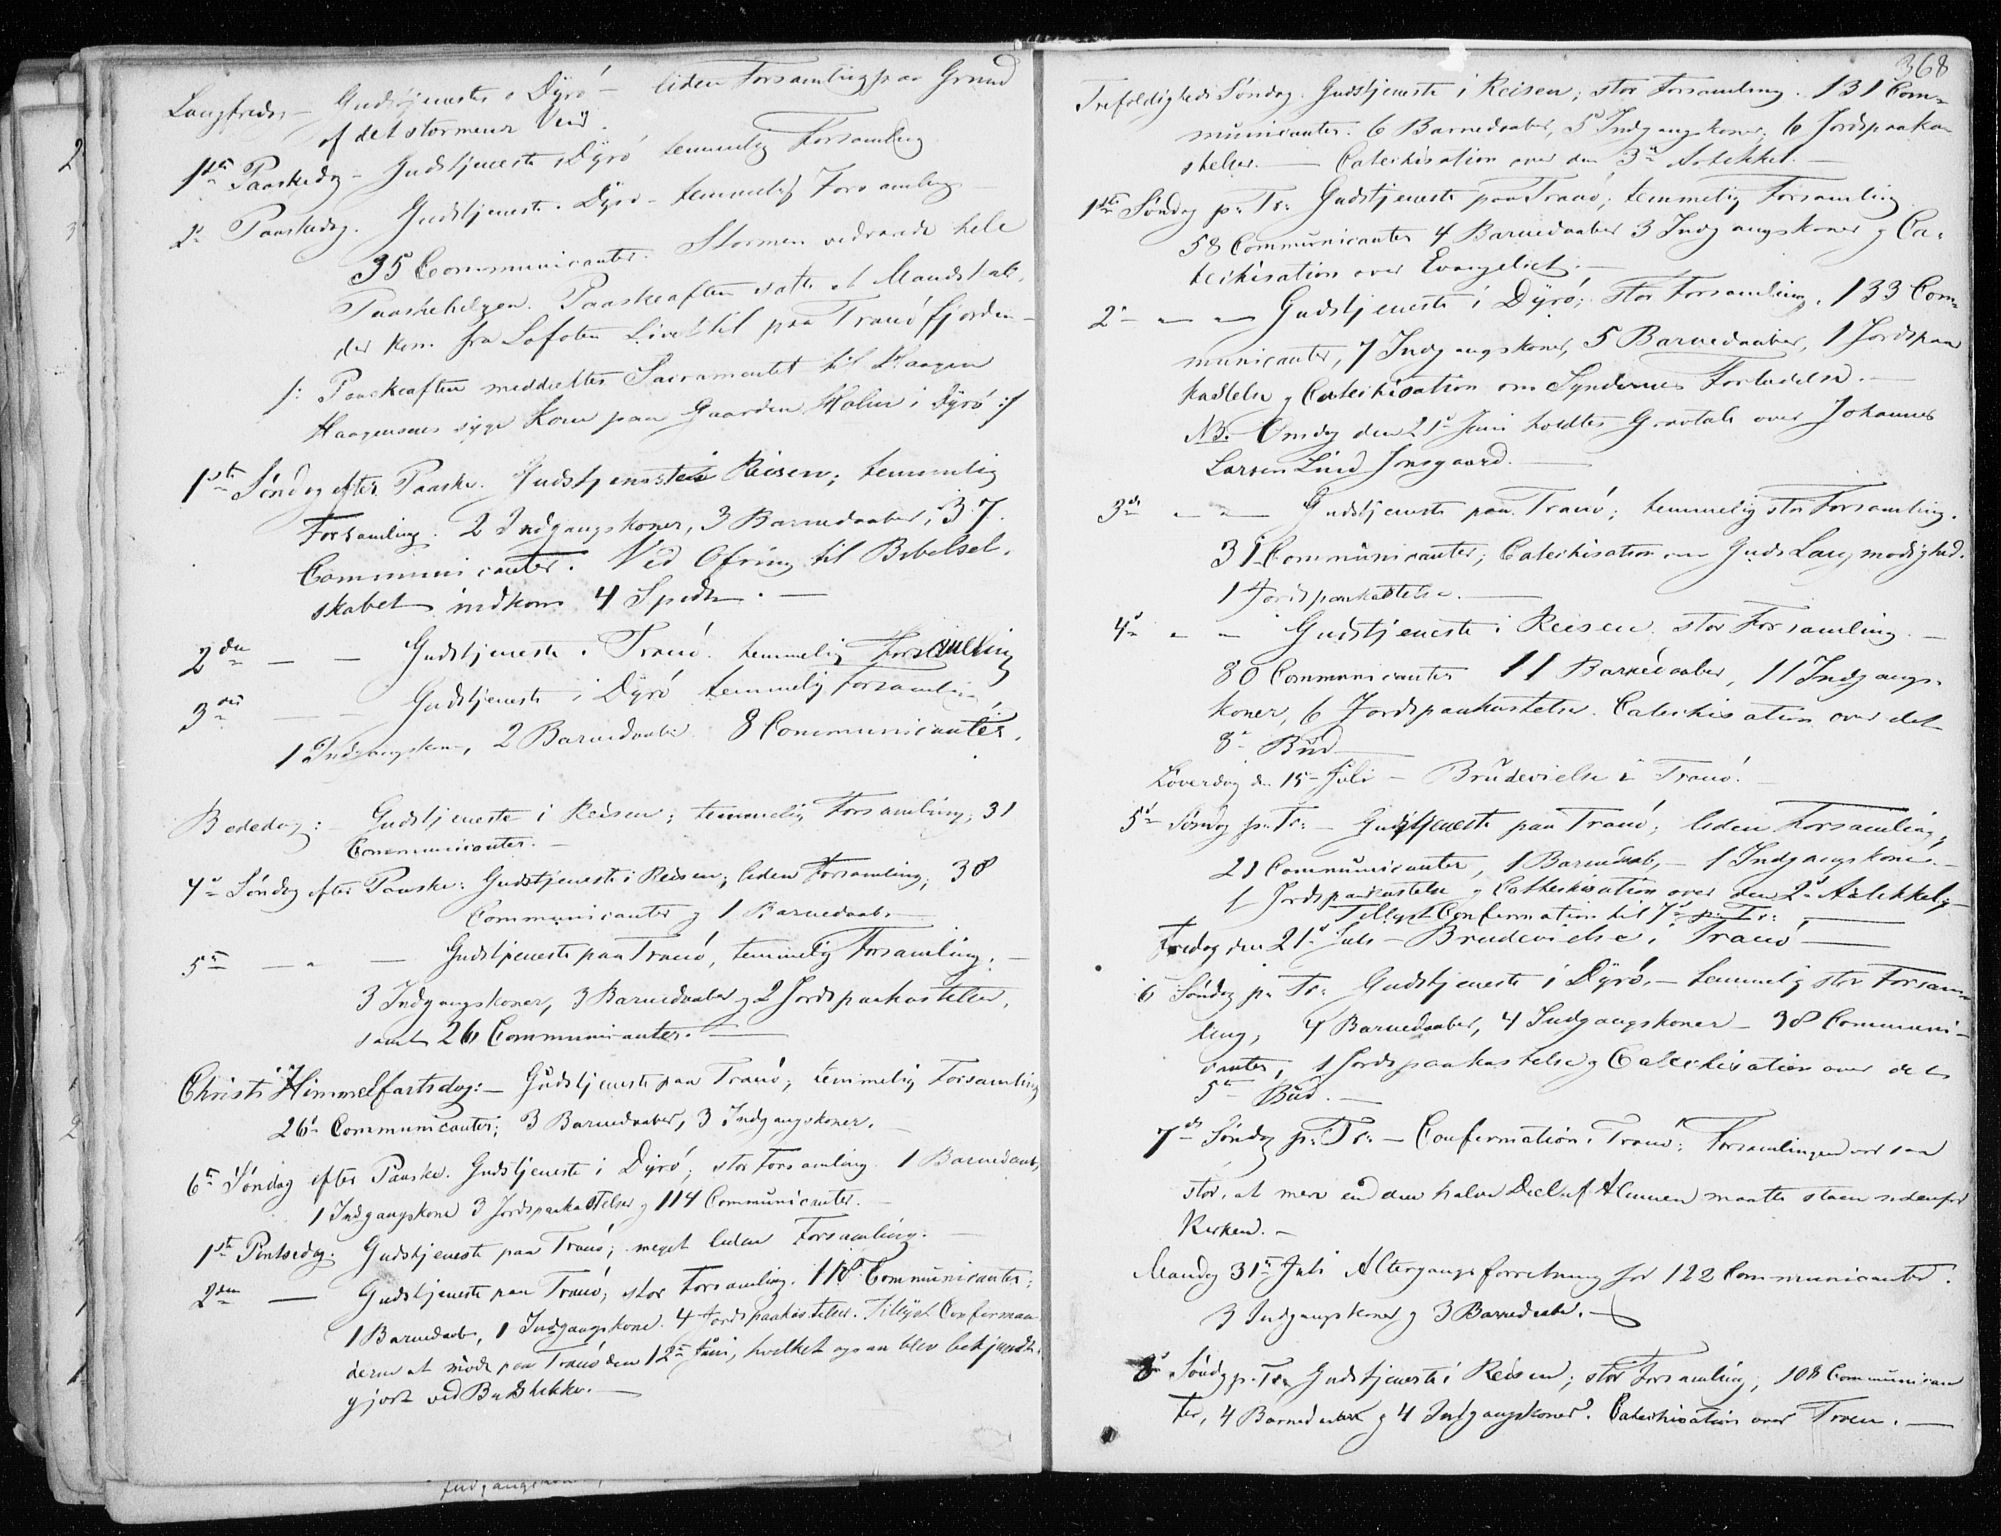 Langfredag - Gudstjeneste i Dyrö - liden Forsamling paa Grund
af det stormende Veir.
1ste Paaskedag - Gudstjeneste i Dyrö temmelig Forsamling
2n Paaskedag. Gudstjeneste i Dyrö - temmelig Forsamling
35 Communicanter. Stormen vedvarede hele
Paaskehelgen. Paaskeaften satte et Mandskab,
der kom fra Lofoten Livet til paa Tranöfjorden -
/: Paaskeaften meddeeltes Sacramentet til Haagen
Haagensens syge Kone paa Gaarden Holm i Dyrö :/
1ste Söndag efter Paaske. Gudstjeneste i Reisen; temmelig
Forsamling. 2 Indgangskoner, 3 Barnedaaber, 37
Communicanter. Ved Ofring til Bibelsel-
skabet indkom 4 Spedlr. -
2den — — Gudstjeneste i Tranö. temmelig Forsamling
3die — — Gudstjeneste i Dyrö temmelig Forsamling
1 Indgangskone, 2 Barnedaaber 8 Communicanter.
Bededag: - Gudstjeneste i Reisen; temmelig Forsamling, 31
Communicanter. -
4de Söndag efter Paaske: Gudstjeneste i Reisen; liden Forsamling; 38
Communicanter og 1 Barnedaab. -
5te — " — Gudstjeneste paa Tranö, temmelig Forsamling. -
3 Indgangskoner, 3 Barnedaaber og 2 Jordspaakastelser,
samt 26 Communicanter. —
Christi Himmelfartsdag: - Gudstjeneste paa Tranö; temmelig Forsamling
26 Communicanter; 3 Barnedaaber, 3 Indgangskoner. -
6te Söndag efter Paaske. Gudstjeneste i Dyrö; stor Forsamling. 1 Barnedaab,
1 Indgangskone 3 Jordspaakastelser og 114 Communicanter. -
1ste Pintsedag. Gudstjeneste paa Tranö; meget liden Forsamling. -
2den — Gudstjeneste paa Tranö; stor Forsamling. 118 Communicanter;
1 Barnedaab, 1 Indgangskone. 4 Jordspaakastelser. Tillyst Confirman-
derne at möde paa Tranö den 12te Juni, hvilket ogsaa blev bekjendt-
gjort ved Budstikke. —
368
Trefoldigheds Söndag. Gudstjeneste i Reisen; stor Forsamling. 131 Com-
municanter. 6 Barnedaaber, 5 Indgangskoner, 6 Jordspaaka-
stelser. — Catechisation over den 3die Artikkel. -
1ste Söndag p. Tr: Gudstjeneste paa Tranö; temmelig Forsamling
58 Communicanter 4 Barnedaaber 3 Indgangskoner og Ca-
techisation over Evangeliet. -
2n — — Gudstjeneste i Dyrö; stor Forsamling. 133 Com-
municanter, 7 Indgangskoner, 5 Barnedaaber, 1 Jordspaa
kastelse og Catechisation om Syndernes Forladelse. —
NB. Onsdag den 21de Juni holdtes Gravtale over Johannes
Larsen Lind Jonsgaard. —
3die — — Gudstjeneste paa Tranö; temmelig stor Forsamling.
31 Communicanter; Catechisation om Guds Langmodighed.
1 Jordspaakastelse. —
4de - - Gudstjeneste i Reisen. stor Forsamling. -
80 Communicanter 11 Barnedaaber, 11 Indgangs-
koner, 6 Jordspaakastelser. Catechisation over det
8de Bud —
Löverdag den 15de Juli - Brudevielse i Tranö. -
5te Söndag p. Tr: - Gudstjeneste paa Tranö; liden Forsamling,
21 Communicanter, 1 Barnedaab, - 1 Indgangskone. -
1 Jordspaakastelse og Cathechisation over den 2den Artikkel, -
Tillyst Confirmation til 7de p. Tr: -
Fredag den 21de Juli - Brudevielse i Tranö —
6 Söndag p. Tr: Gudstjeneste i Dyrö. - temmelig stor Forsam-
ling, 4 Barnedaaber, 4 Indgangskoner - 38 Communi-
canter, 1 Jordspaakastelse og Catechisation over det
5te Bud. -
7de Söndag p. Tr: - Confirmation i Tranö: Forsamlingen var saa
stor, at mere end den halve Deel af Almuen maatte staae udenfor
Kirken. -
Mandag 31te Juli Altergangsforretning for 122 Communicanter.
3 Indgangskoner og 3 Barnedaaber. -
8de Söndag p. Tr. Gudstjeneste i Reisen; stor Forsamling, 108 Communican
ter, 4 Barnedaaber og 4 Indgangskoner. Catechisation over Troen. —